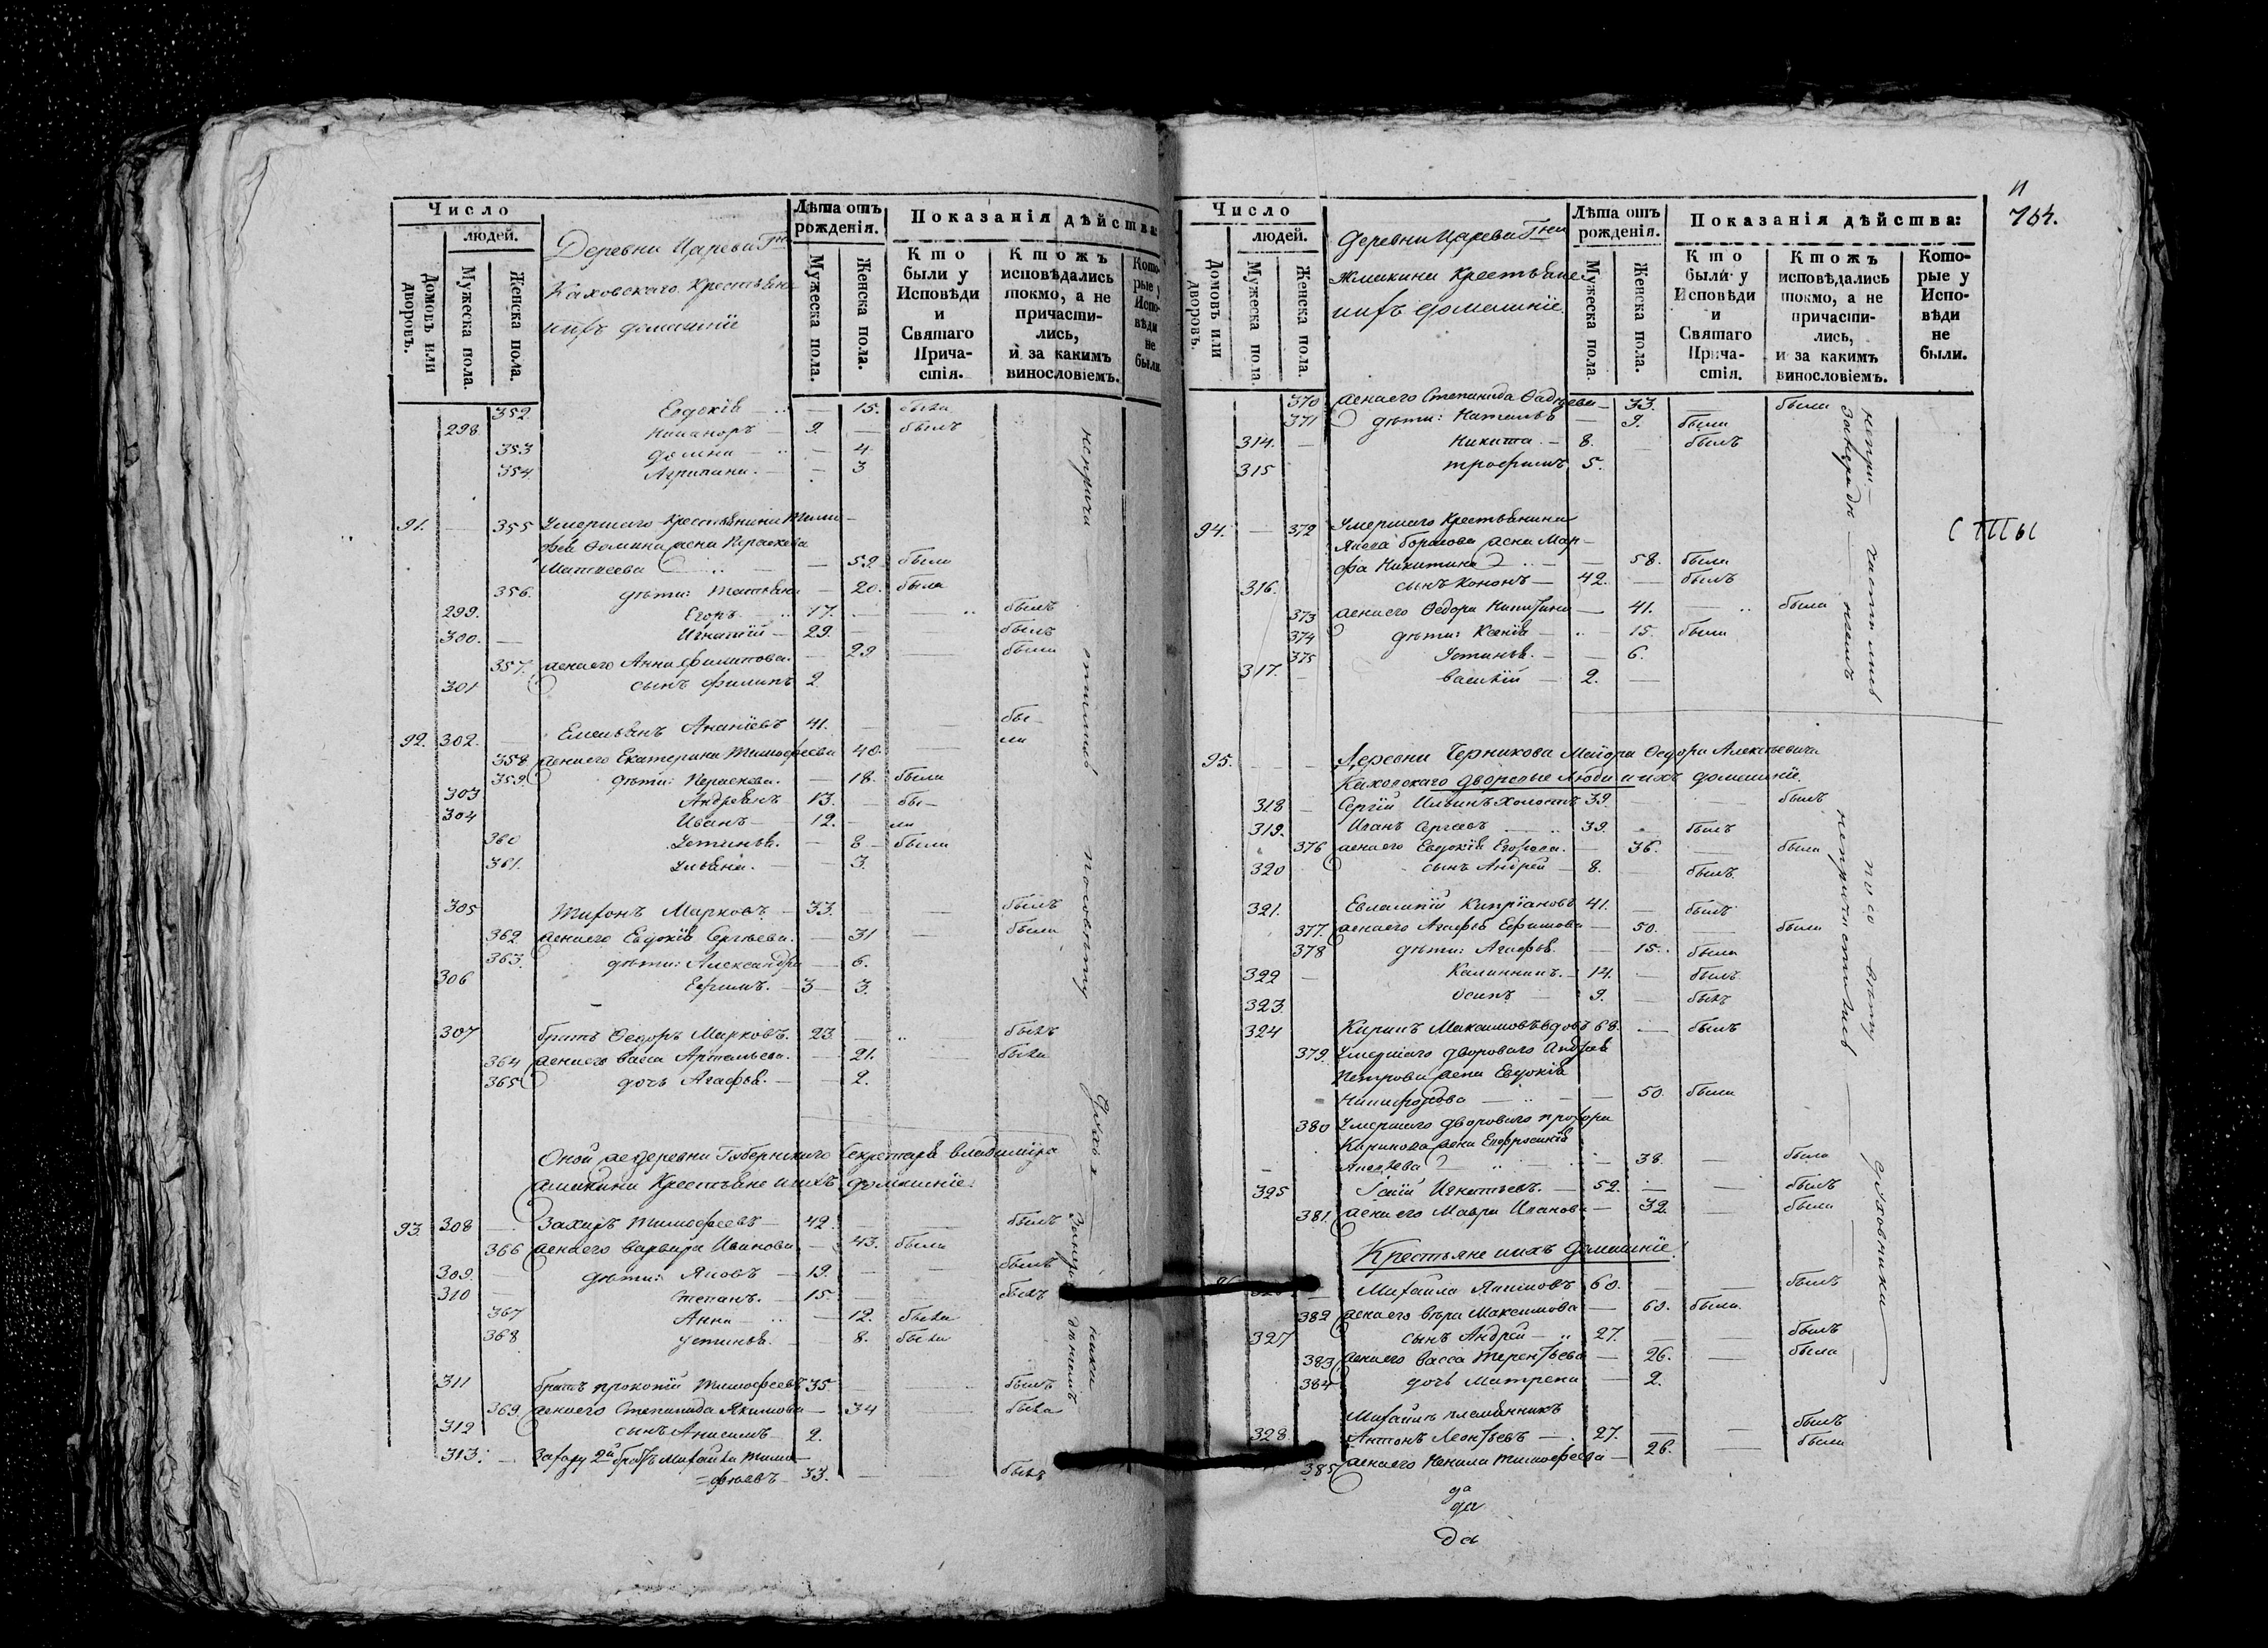 Число
людей.
Домовъ или дворовъ.
Мужеска пола.
Женска пола.
Деревни Царева Гна
Каховскаго Крестьяне
иихъ домашніе
Лѣта отъ рожденія.
Мужеска пола.
Женска пола.
Показанія дѣйства:
Кто были у Исповѣди и Святаго Причастія.
Ктожъ исповѣдались токмо, а не причастились, и за какимъ винословіемъ.
Которые у Исповѣди не были.
352. Евдокія — 15. была
298 Никаноръ — 9. — былъ
353 Домна — 4
354. Агрипина. — 3
91. — 355 Умершаго Крестьянина Тимо
фея Фомина жена Параскева
Матвеева — 52 была
356. дѣти: Татьяна — 20. была
299. Егоръ 17. — былъ
300. Игнатій — 29. — былъ
357. жена его Анна Филипова. — 29 была
301 сынъ Филипъ 2.
92. 302. Емельянъ Ананіевъ 41. бы-
ли
358 жена его Екатерина Тимофеева 40.
359. дѣти: Параскева. — 18. была
303 Андреянъ 13. — бы-
304 Иванъ — 12. — ли
360 Устинья. — 8 — была
361. Ульяна. — 3.
305 Тихонъ Марковъ — 33. былъ
362 жена его Евдокія Сергѣева. — 31 была
363. дѣти: Александра — 6.
306 Ефимъ. — 3 — 3.
307 братъ Федоръ Марковъ. 23. былъ
364 жена его Васса Артемьева. — 21. была
365 дочь Агафья. — 2.
Оной же деревни Губернскаго Секретаря Владимира
Жмакина Крестьяне иихъ домашніе.
93. 308 — Захаръ Тимофеевъ — 42. былъ
366 жена его Варвара Иванова — 43. была
309. дѣти: Яковъ — 19. былъ
310 Степанъ. — 15. былъ
367 Анна — 12. была
368 Устинья. — 8. была
311 братъ Прокопій Тимофеевъ 35. былъ
369 жена его Степанида Якимова — 34 была
312 сынъ Анисимъ — 2.
313. — Захару 2й братъ Михайла Тимо-
=фѣевъ — 33. былъ
непричастился посовѣту
Духов
Число
людей.
Домовъ или дворовъ.
Мужеска пола.
Женска пола.
Деревни Царева Гжи
Жмакина Крестьяне
иихъ домашніе.
Лѣта отъ рожденія.
Мужеска пола.
Женска пола.
Показанія дѣйства:
Кто были у Исповѣди и Святаго Причастія.
Ктожъ исповѣдались токмо, а не причастились, и за какимъ винословіемъ.
Которые у Исповѣди не были.
370 жена его Степанида Фадѣева — 33. была
371 дѣти: Наталья — 9. была
314. — Никита. — 8. былъ
315 Трофимъ 5.
94. — 372 Умершаго Крестьянина
Якова Борисова жена Мар-
фа Никитина — 58. была
316. сынъ Кононъ — 42. — былъ
373 жена его Федора Никитина — 41. была
374 дѣти: Ксенія — 15. была
375 Устинья. — 6.
317. — Василій — 2. —
95. Деревни Черникова Майора Федора Алексѣевича
Каховскаго дворовые люди иихъ домашніе.
318 — Сергій Ильинъ холостъ 39. былъ
319. Иванъ Сергеевъ 39. былъ
376 жена его Евдокія Егорова. — 36. была
320 сынъ Андрей — 8. былъ
321. Евлампій Кипріановъ 41. былъ
377. жена его Агафья Ефимова — 50. была
378 дѣти: Агафья. — 15. была
322 — Калинникъ. — 14. былъ
323. Осипъ — 9. — былъ
324 Кирилъ Максимовъ вдовъ 68. — былъ
379. Умершаго дворового Андрея
Петрова жена Евдокія
Никифорова — 50. была
380 Умершаго дворового Прохора
Карпинова жена Евфросинія
Яковлева — 38. была
325 Гаій Игнатьевъ. — 52. былъ
381. жена его Мавра Иванова — 32. была
Крестьяне иихъ домашніе
Михайла Якимовъ 60. былъ
382 жена его Вѣра Максимова — 60. была
327 сынъ Андрей — 27. былъ
383 жена его Васса Терентьева — 26. была
384 дочь Матрена — 2.
Михайлѣ племянникъ
328. Антонъ Леонтьевъ — 27. былъ
385 жена его Ненила Тимофеева — 26. была
непричастились
духовника
764.
да
да
да